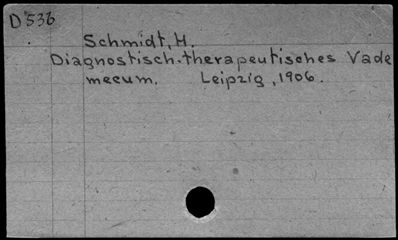 D536
Schmidt, H.
Diagnostisch-therapeutisches Vade
mecum. Leipzig, 1906.